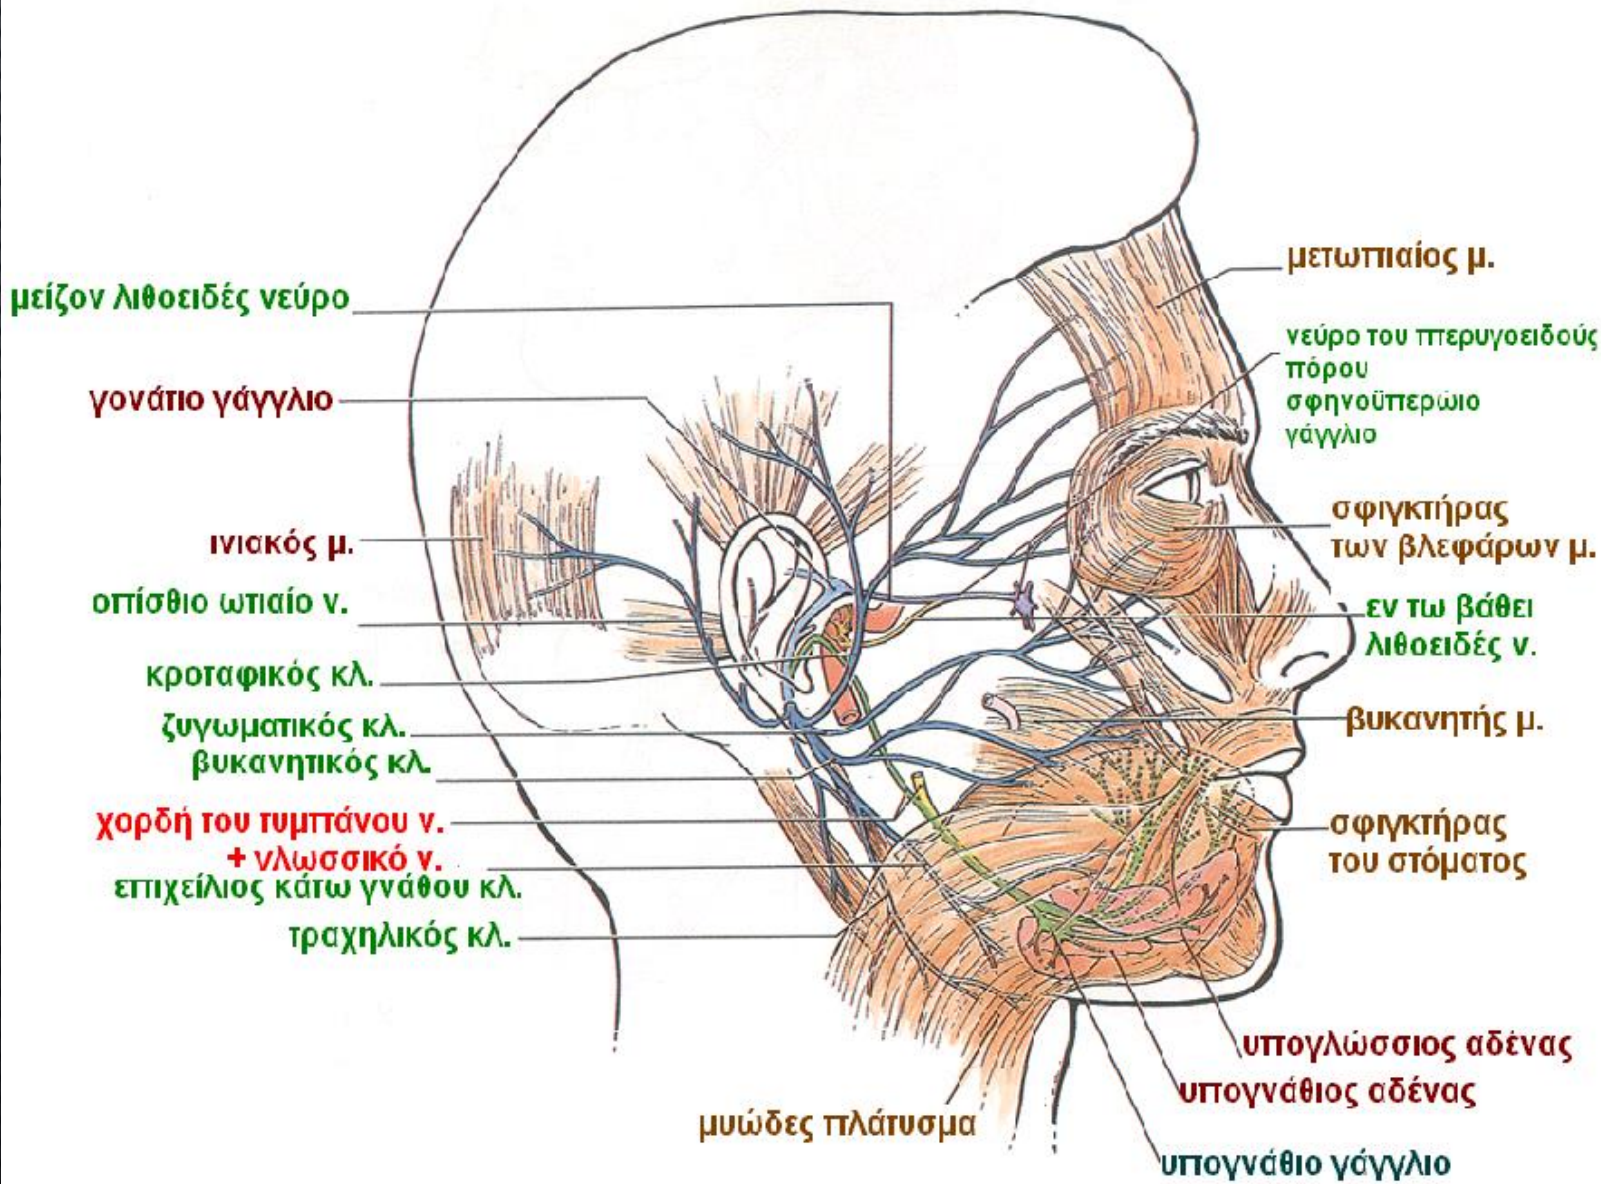 μείζον λιθοειδές νεύρο
γονάτιο γάγγλιο
ινιακός μ.
οπίσθιο ωτιαίο ν.
κροταφικός κλ.
ζυγωματικός κλ.
βυκανητικός κλ.
χορδή του τυμπάνου ν.
+ γλωσσικό ν.
επιχείλιος κάτω γνάθου κλ.
τραχηλικός κλ.
μετωπιαίος μ.
νεύρο του πτερυγοειδούς
πόρου
σφηνοϋπερώιο
γάγγλιο
σφιγκτήρας
των βλεφάρων μ.
εν τω βάθει
λιθοειδές ν.
βυκανητής μ.
σφιγκτήρας
του στόματος
υπογλώσσιος αδένας
υπογνάθιος αδένας
μυώδες πλάτυσμα
υπογνάθιο γάγγλιο